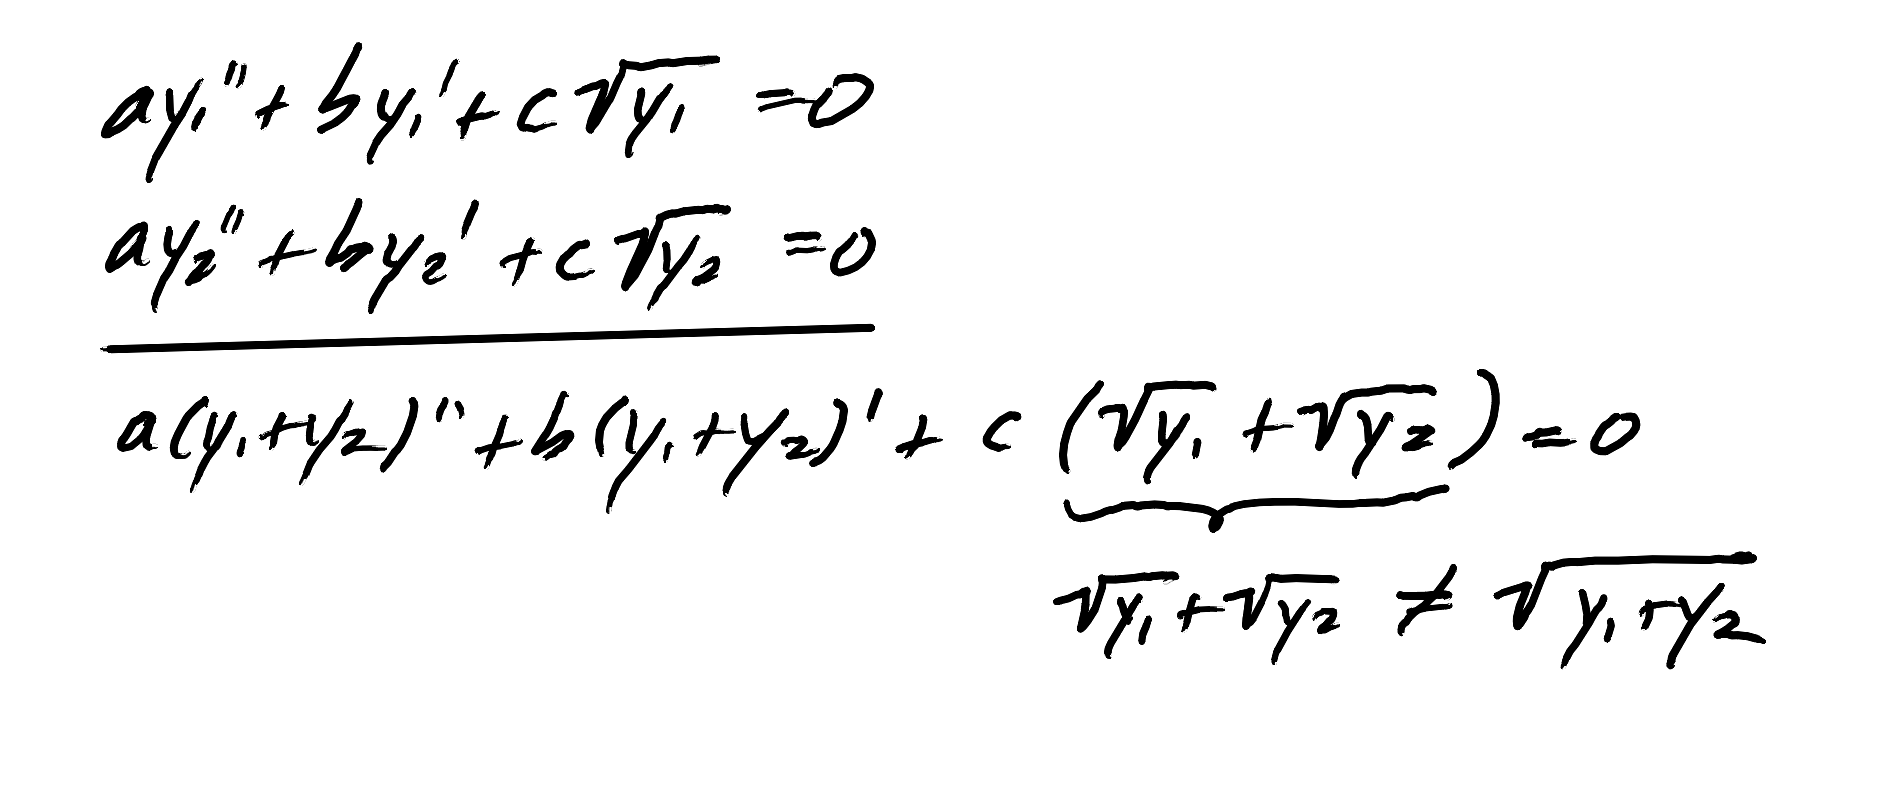 ay₁'' + by₁' + c√y₁ = 0
ay₂'' + by₂' + c√y₂ = 0
a(y₁+y₂)'' + b(y₁+y₂)' + c(√y₁ + √y₂) = 0
√y₁ + √y₂ ≠ √(y₁+y₂)